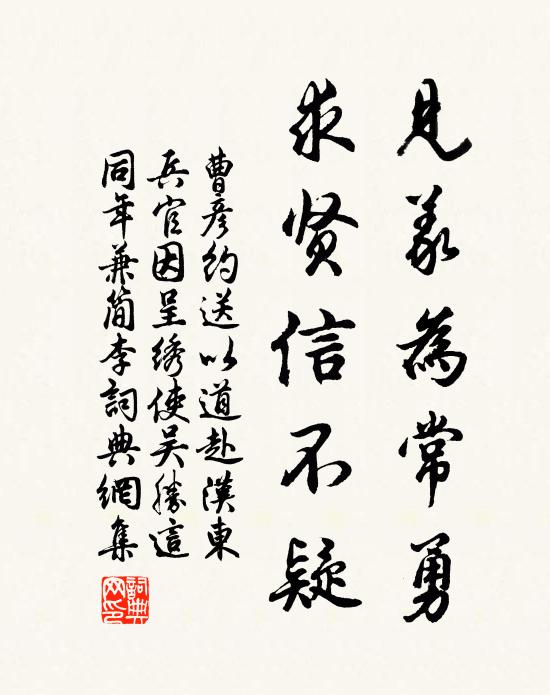 見義為常勇
求贤信不疑
曹彦約送以道赴漢東
兵官因呈綉使吴勝這
同年兼简李詞典網集
詞典
网印